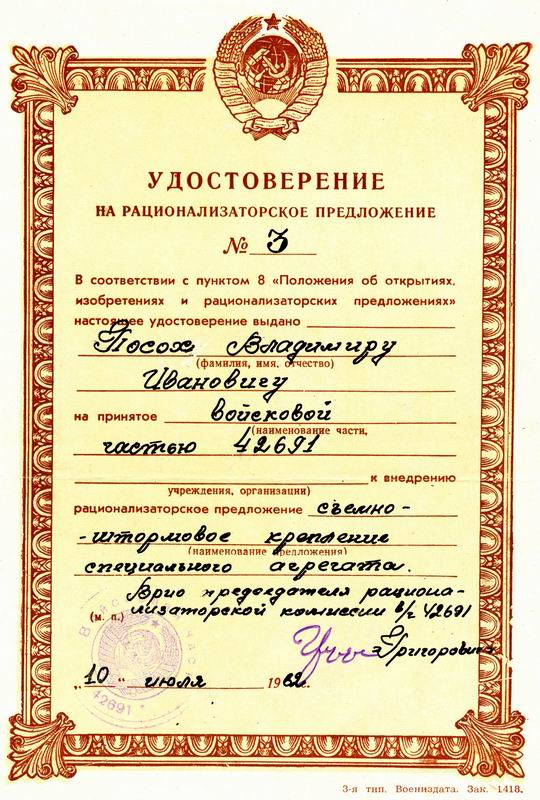 УДОСТОВЕРЕНИЕ
НА РАЦИОНАЛИЗАТОРСКОЕ ПРЕДЛОЖЕНИЕ
№ 3
В соответствии с пунктом 8 «Положения об открытиях,
изобретениях и рационализаторских предложениях»
настоящее удостоверение выдано
Посох Владимиру
(фамилия, имя, отчество)
Ивановичу
на принятое войсковой
(наименование части,
частью 42691
к внедрению
учреждения, организации)
рационализаторское предложение съемно-
-штормовое крепление
(наименование предложения)
специального агрегата.
Врио председателя рациона-
лизаторской комиссии в/ч 42691
(м. п.)
Григорович
„10" июля 1962г.
42691
3-я тип. Воениздата. Зак. 1418.